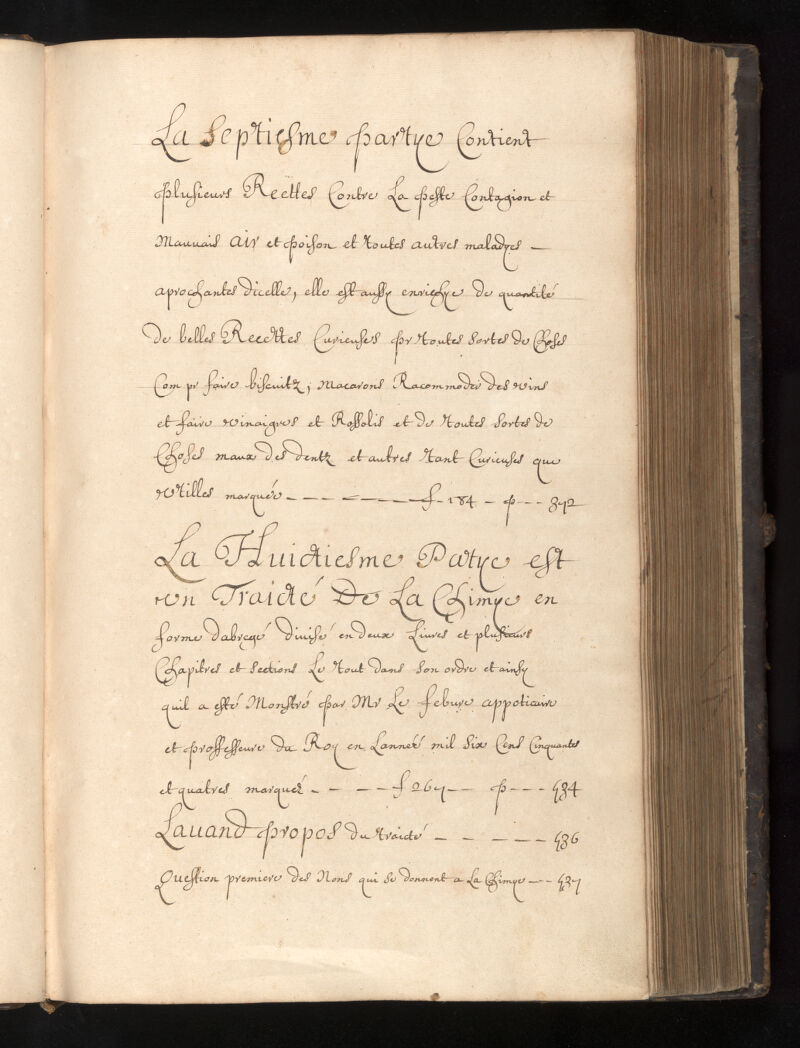 La Septiesme partye Contient
plusieurs Recettes Contre La peste Contagion et
Mauuais air et poison et toutes autres maladyes —
aprochantes dicelle, elle est aussy enrichye de quantité
De belles Recettes Curieuses pr toutes sortes de Choses
Com pr faire biscuitz, Macarons Racommoder des vins
et faire vinaigres et Rossolis et de toutes sortes de
Choses maux des dentz et autres tant Curieuses que
vtilles marquée — — — — — — f. 184 — p — — 372
La Huictiesme Patye est
vn Traicté De La Chimye en
forme dabregé diuisé en deux Liures et plusieurs
Chapitres et sections Le tout dans son ordre et ainsy
quil a esté Monstré par Mr Le febure appoticaire
et proffesseure du Roy en Lanneé mil six Cens Cinquantes
et quatres marqueé — — — — f 267 — — p — — — 534
Lauand propos du traicté — — — — — 536
Question premiere des Nons qui se donnent a La Chimye — — 537